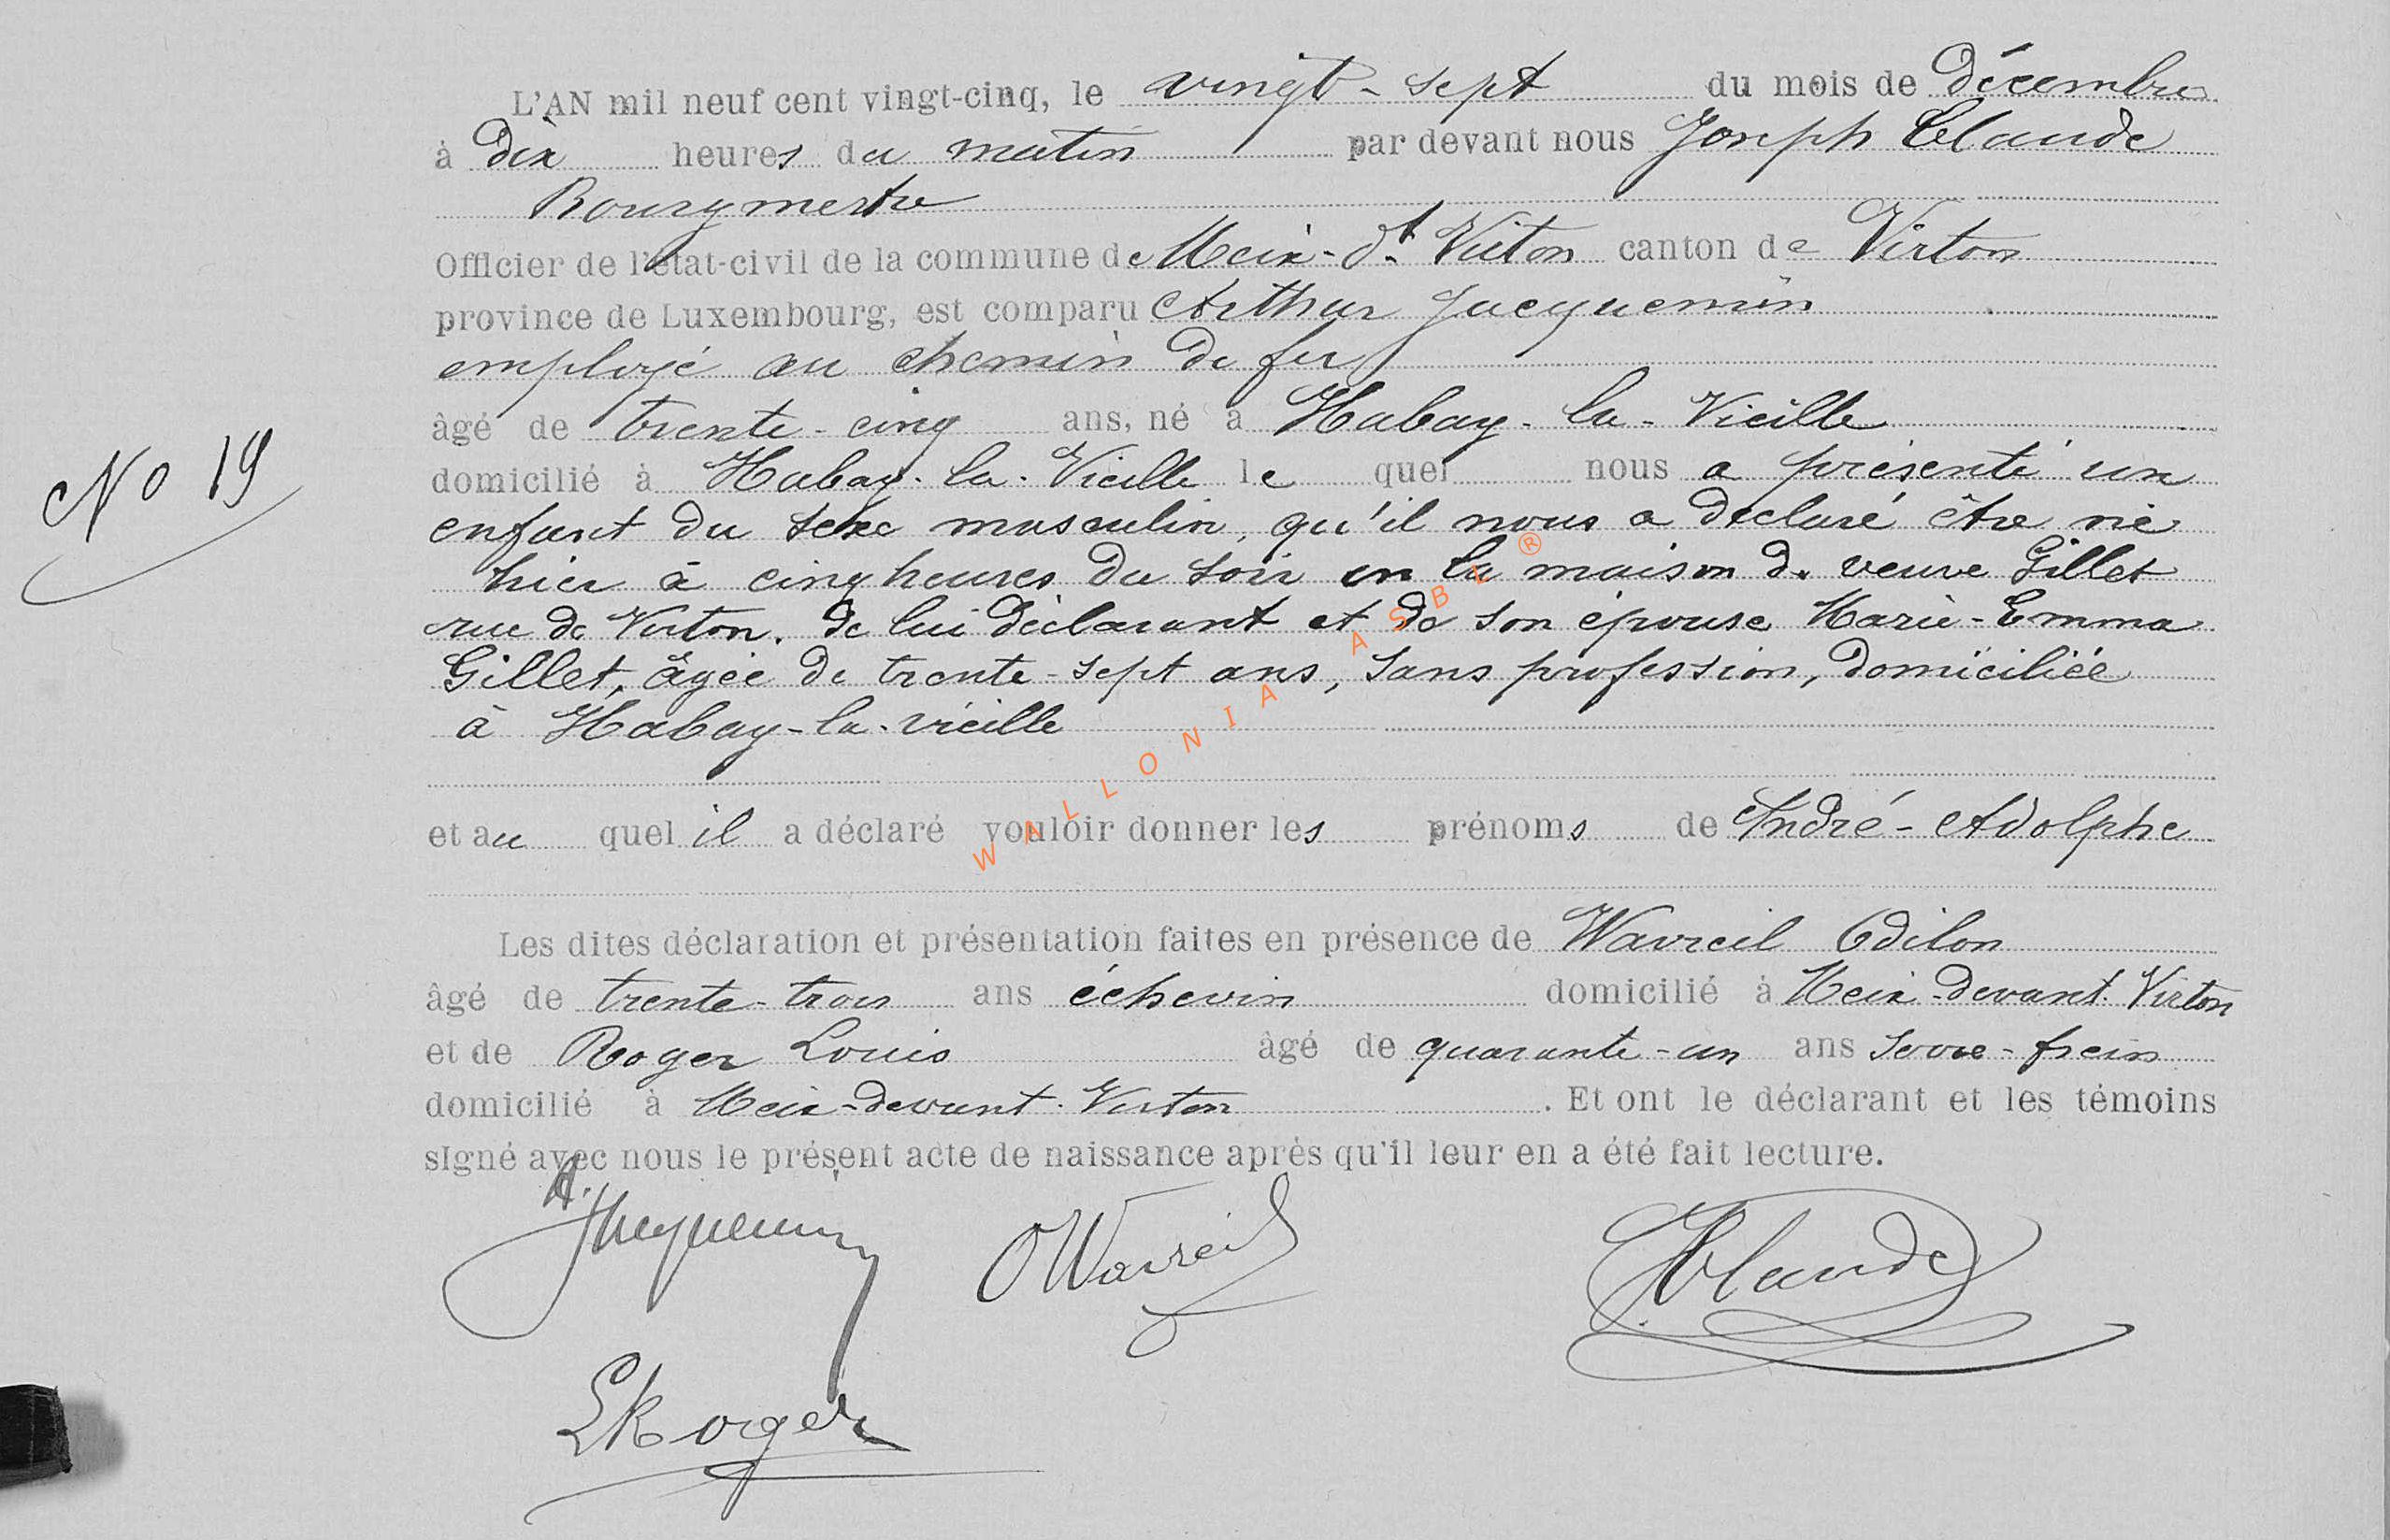 L'AN mil neuf cent vingt-cinq, le vingt-sept du mois de décembre
à dix heures du matin par devant nous Joseph Claude
Bourgmestre
Officier de l'état-civil de la commune de Meix-dt Virton canton de Virton
province de Luxembourg, est comparu Arthur Jacquemin
employé au chemin de fer
âgé de trente-cinq ans, né à Habay-la-Vieille
No 19
domicilié à Habay-la-Vieille le quel nous a présenté un
enfant du sexe masculin, qu'il nous a déclaré être né
hier à cinq heures du soir en la maison de veuve Gillet
rue de Virton. de lui déclarant et de son épouse Marie-Emma
Gillet, âgée de trente-sept ans, sans profession, domiciliée
à Habay-la-vieille
et au quel il a déclaré vouloir donner les prénoms de André-Adolphe
Les dites déclaration et présentation faites en présence de Wavreil Odilon
âgé de trente-trois ans échevin domicilié à Meix-devant-Virton
et de Roger Louis âgé de quarante-un ans serre-frein
domicilié à Meix-devant-Virton. Et ont le déclarant et les témoins
sIgné avec nous le présent acte de naissance après qu'il leur en a été fait lecture.
A. Jacquemin OWavreil JClaude
LRoger
WALLONIA ASBL ®